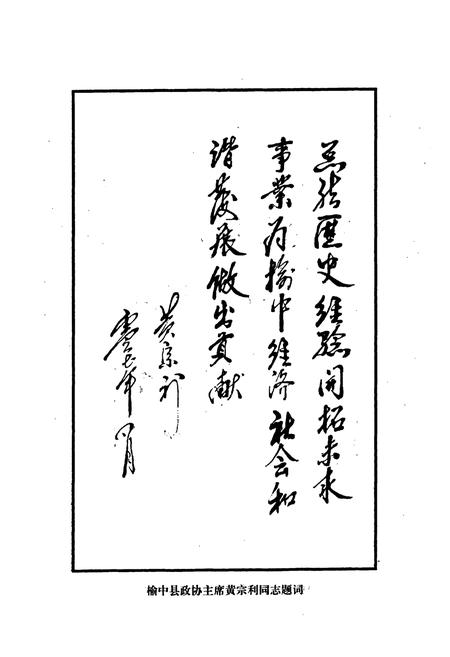 总结历史经验开拓未来
事业为榆中经济社会和
谐发展做出贡献
黄宗利
零七年八月
榆中县政协主席黄宗利同志题词